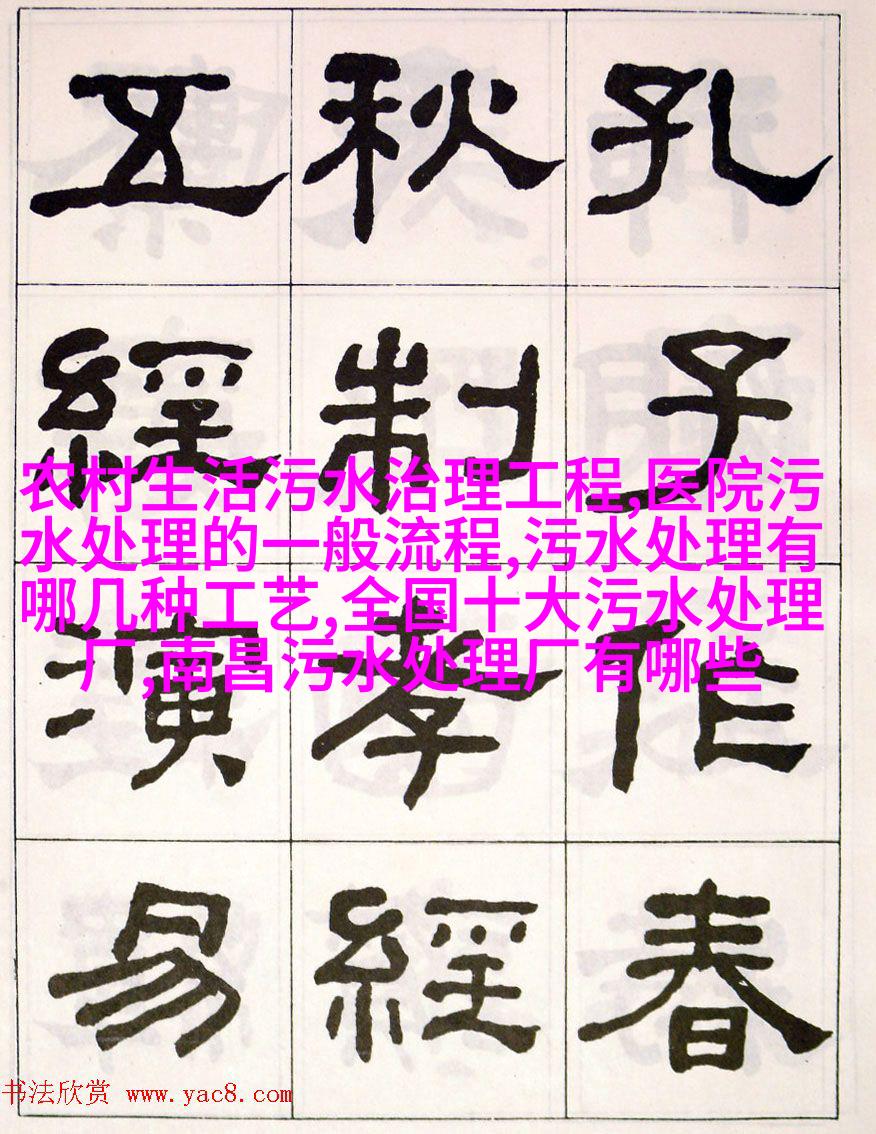 孔子作春
秋制孝經
五經演易
农村生活污水治理工程,医院污
水处理的一般流程,污水处理有
哪几种工艺,全国十大污水处理
厂,南昌污水处理厂有哪些
书法欣赏 www.yac8.com